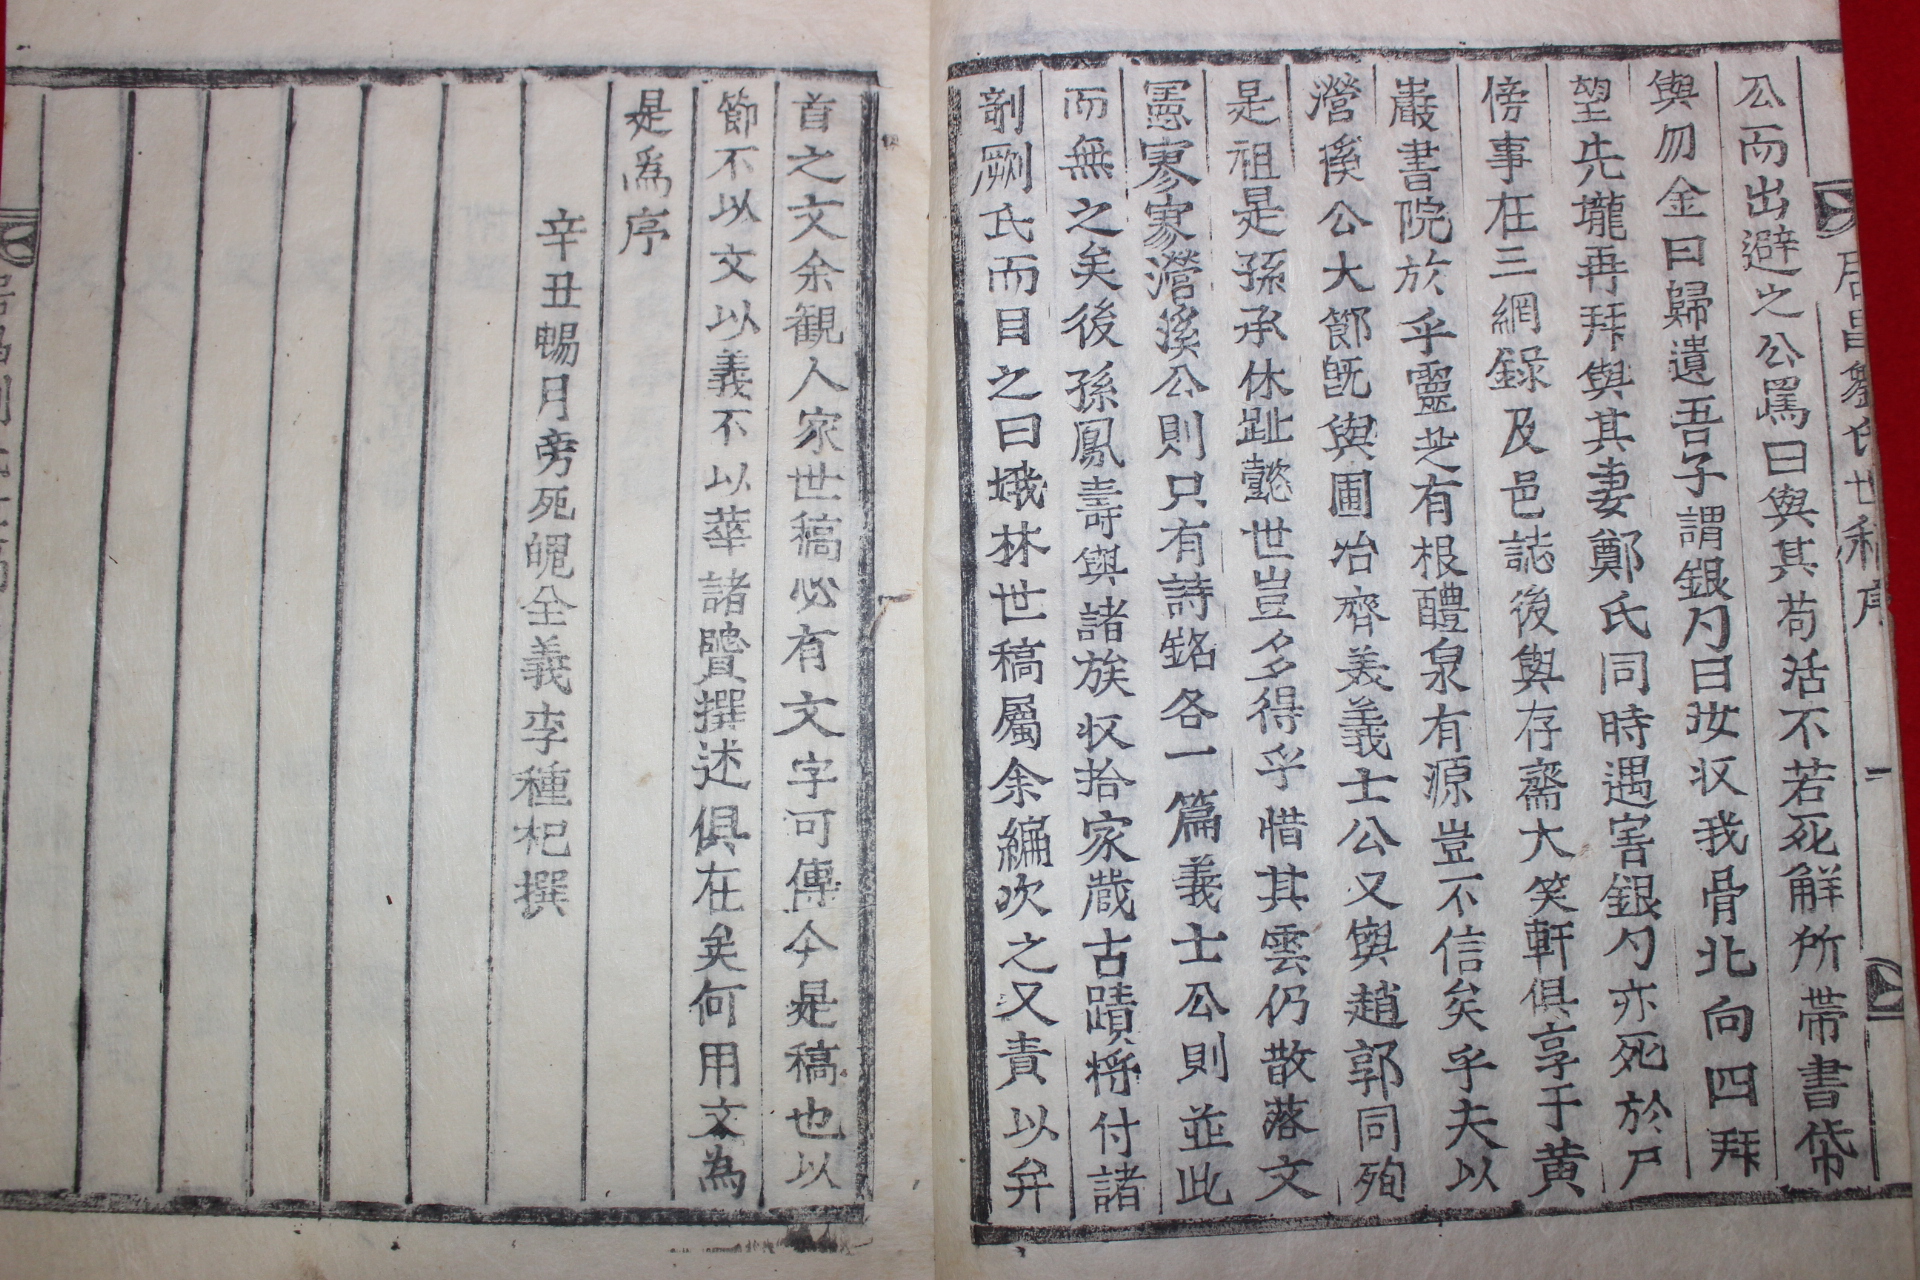 居昌劉氏世稿序
一
公而出避之公罵曰與其苟活不若死解所帶書帒
與勿金曰歸遺吾子謂銀勺曰汝収我骨北向四拜
望先壠再拜與其妻鄭氏同時遇害銀勺亦死於尸
傍事在三綱錄及邑誌後與存齋大笑軒俱享于黃
巖書院於乎靈芝有根醴泉有源豈不信矣乎夫以
瀯溪公大節旣與圃冶齊美義士公又與趙郭同殉
是祖是孫承休趾懿世豈多得乎惜其雲仍散落文
憲寥寥瀯溪公則只有詩銘各一篇義士公則並此
而無之矣後孫鳳壽與諸族収拾家蔵古蹟將付諸
剞劂氏而目之曰娥林世稿屬余編次之又責以弁
首之文余觀人家世稿必有文字可傳今是稿也以
節不以文以義不以華諸賢撰述俱在矣何用文為
是爲序
辛丑暢月旁死魄全義李種杞撰